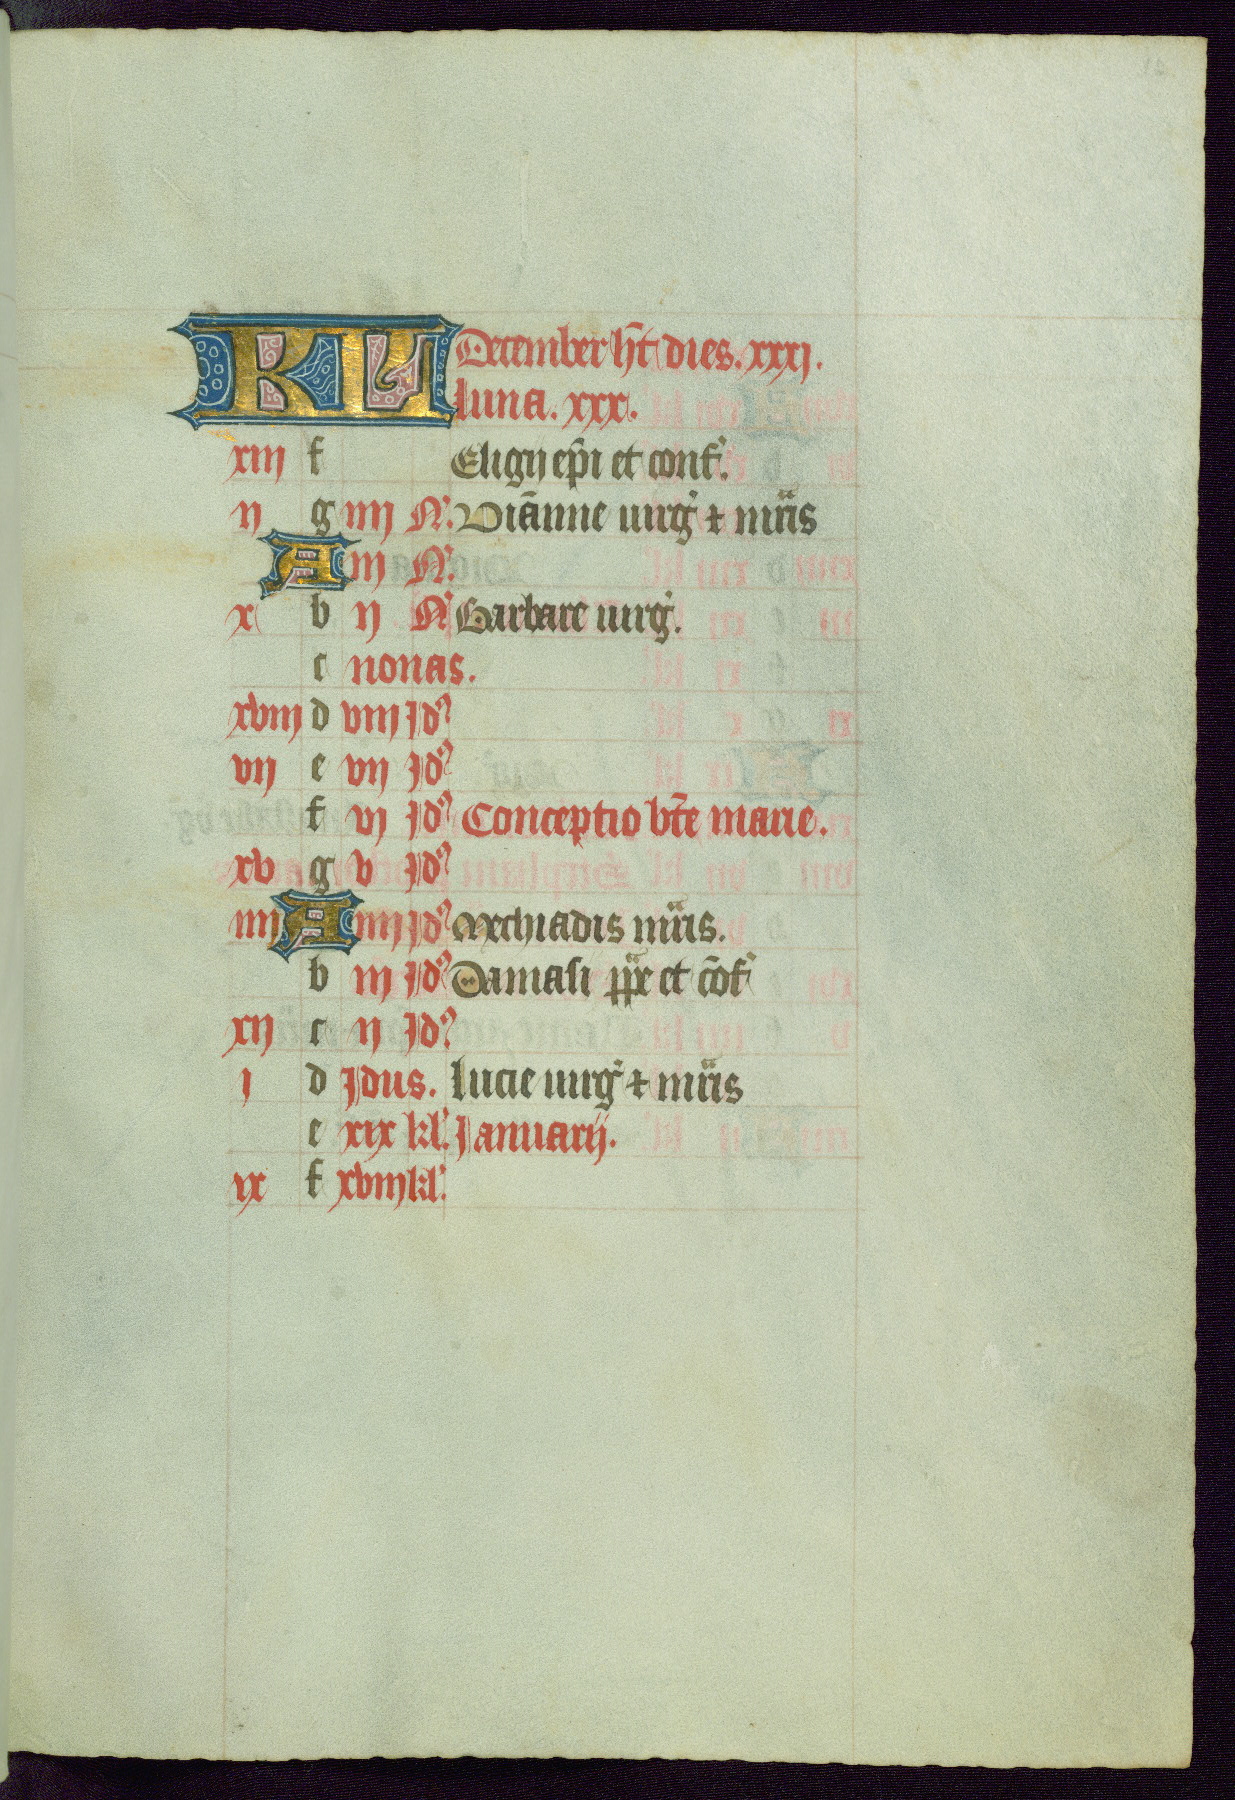 KL December ħt dies. xxxj.
luna. xxx.
xiij f Eligij ep̄i et conf.
ij g iiij N. Viānne uirg̕ ⁊ mr̄is
A iij N.
x b ij N Barbare uirg̕.
c nonas.
xviij d viij Jdꝰ
vij e vij Jdꝰ
f vj Jdꝰ Conceptio bt̄e marie.
xv g v Jdꝰ
iiij A iiij Jdꝰ Melchiadis mr̄is.
b iij Jdꝰ Damasi pp̄e et cōf̕
xij c ij Jdꝰ
i d Jdus. Lucie uirg̕ ⁊ mr̄is
e xix kl̕. Januarij.
ix f xviij kl̕.